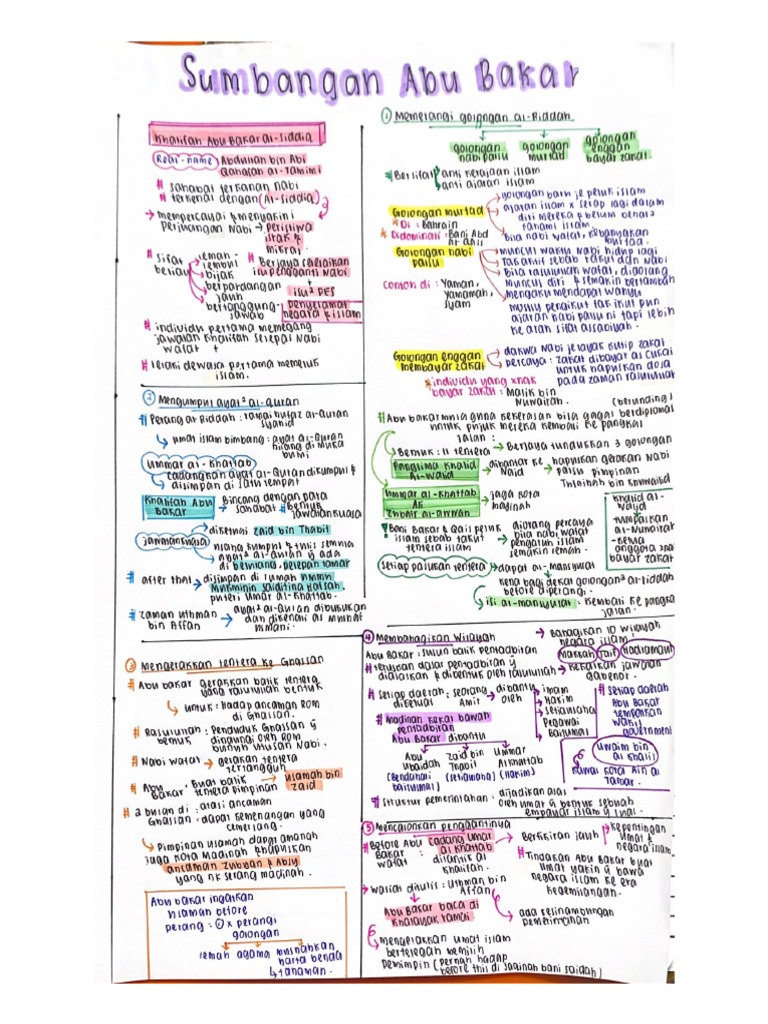 Sumbangan Abu Bakar
Khalifah Abu Bakar al-Siddiq
Real-name Abdullah bin Abi
Qahafah al-Tamimi
# sahabat terkanan nabi
# terkenal dengan (Al-Siddiq)
→ mempercayai & meyakini
Perjuangan Nabi → peristiwa
israk &
mikraj
# sifat
beliau
lemah-
lembut
bijak
berpandangan
jauh
bertanggung-
jawab
# Berjaya selesaikan
isu pengganti nabi
+
isu² PES
penyelamat
negara & islam
# individu pertama memegang
jawatan khalifah selepas Nabi
wafat +
# lelaki dewasa pertama memeluk
islam.
① Memerangi golongan al-Riddah
golongan
nabi palsu
golongan
murtad
golongan
enggan
bayar zakat.
# Bersifat
anti kerajaan islam
anti ajaran islam
Golongan murtad
* Di : Bahrain
* Didominasi : Bani Abd
Al-Qais
golongan baru je peluk islam
ajaran islam x serap lagi dalam
diri mereka & belum benar²
fahami islam
bila nabi wafat, kebanyakan
murtad.
Golongan nabi
palsu
contoh di : Yaman,
yamamah,
syam
muncul waktu nabi hidup lagi
Taksifat sebab takut dan nabi
Bila rasulullah wafat, digolong
muncul diri & semakin bertambah
mengaku mendapat wahyu
mostly pengikut tak ikut pun
ajaran nabi palsu ni tapi lebih
ke arah sifat assabiyah.
Golongan enggan
membayar zakat
dakwa Nabi je layak kutip zakat
percaya : zakat dibayar as cukai
untuk hapuskan dosa
pada zaman rasulullah
* individu yang xnak
bayar zakat : Malik bin
Nuwairah.
(berunding)
# Abu bakar mula guna kekerasan bila gagal berdiplomasi
untuk pujuk mereka kembali ke pangkal
jalan :
Bentuk : 11 tentera → Berjaya tundukkan 3 golongan
Panglima Khalid
al-Walid
dihantar ke
Najd
hapuskan gerakan nabi
palsu pimpinan
Tulaihah bin Khuwailid
Ummar al-Khattab
&
Zubair al-awwam
jaga kota
madinah
Khalid al-
Walid
tumpaskan
al-Nuwairah
-ketua
anggota xnak
bayar zakat
! Bani Bakar & Qais peluk
islam sebab takut
tentera islam
diorang percaya
bila nabi wafat
pengaruh islam
semakin lemah.
setiap pasukan tentera → dapat al-mansyurat
kena bagi dekat golongan² al-riddah
before diperangi.
isi al-mansyurat : kembali ke pangkal
jalan.
② Mengumpul ayat² al-Quran
# Perang ar Riddah : ramai hufaz al-Quran
syahid
umat islam bimbang : ayat al-Quran
hilang di muka
bumi
Ummar al-Khattab
cadangkan ayat al-Quran dikumpul &
disimpan di satu tempat
Khalifah Abu
Bakar
Bincang dengan para
sahabat
Bentuk
jawatankuasa
jawatankuasa
diketuai zaid bin Thabit
mana kumpul & tulis semula
ayat² al-Quran & ada
di belulang, pelepah tamar
# after that → disimpan di rumah ummu
Mukminin Saiditina Hafsah,
puteri Umar al-Khattab.
# zaman uthman
bin Affan
ayat² al-Quran dibukukan
dan dikenali as mushaf
Uthmani.
③ Mengerakkan tentera ke Ghassan
# Abu bakar gerakkan balik tentera
yang rasulullah bentuk
untuk : hadap ancaman ROM
di Ghassan.
# Rasulullah : penduduk Ghassan &
bentuk
dinaungi oleh ROM
bunuh utusan Nabi.
# Nabi wafat → gerakan tentera
tertangguh
# Abu
Bakar
: Buat balik → usamah bin
tentera pimpinan zaid
# 2 bulan di : atasi ancaman
Ghassan : dapat kemenangan yang
cemerlang.
Pimpinan usamah dapat amanah
jaga kota Madinah & hapuskan
ancaman Zubban & Absy
yang nk serang madinah.
Abu bakar ingatkan
usamah before
perang : x perangi
golongan
lemah agama musnahkan
harta benda
tanaman.
④ Membahagikan Wilayah
→ Bahagikan 10 wilayah
negara islam
Makkah Taif Hadramaut
Abu Bakar : susun balik pentadbiran
# teruskan dasar pentadbiran &
dijalankan & dibentuk oleh rasulullah
→ kekalkan jawatan
gabenor.
# setiap daerah : seorang
diketuai Amir
dibantu
oleh
imam
Hakim
setiausaha
Pegawai
baitulmal
# setiap daerah
Abu Bakar
tempatkan
wakil
government
Uwaim bin
al Khalil
Rawat kota Ain al
Tamar.
# Madinah kekal bawah
pentadbiran
Abu Bakar dibantu
Abu
Ubaidah
(Bendahari
baitulmal)
Zaid bin
Thabit
(setiausaha)
Ummar
Alkhattab
(Hakim)
# Struktur pemerintahan : dijadikan asas
oleh umat & bentuk sebuah
empayar islam & luas.
⑤ Mencalonkan penggantinya
# Before Abu
Bakar
wafat :
cadang Umar
al Khattab
dilantik as
khalifah.
→ Berfikiran jauh
Kepentingan
umat &
negara islam
# Tindakan Abu Bakar buat
umat yakin & bawa
negara islam ke era
kegemilangan.
→ wasiat ditulis : Uthman bin
Affan
Abu Bakar baca di
khalayak ramai
ada kesinambungan
pemerintahan.
mengerakkan umat islam
bertelagah memilih
pemimpin (pernah hadap
before this di saqifah bani saidah)